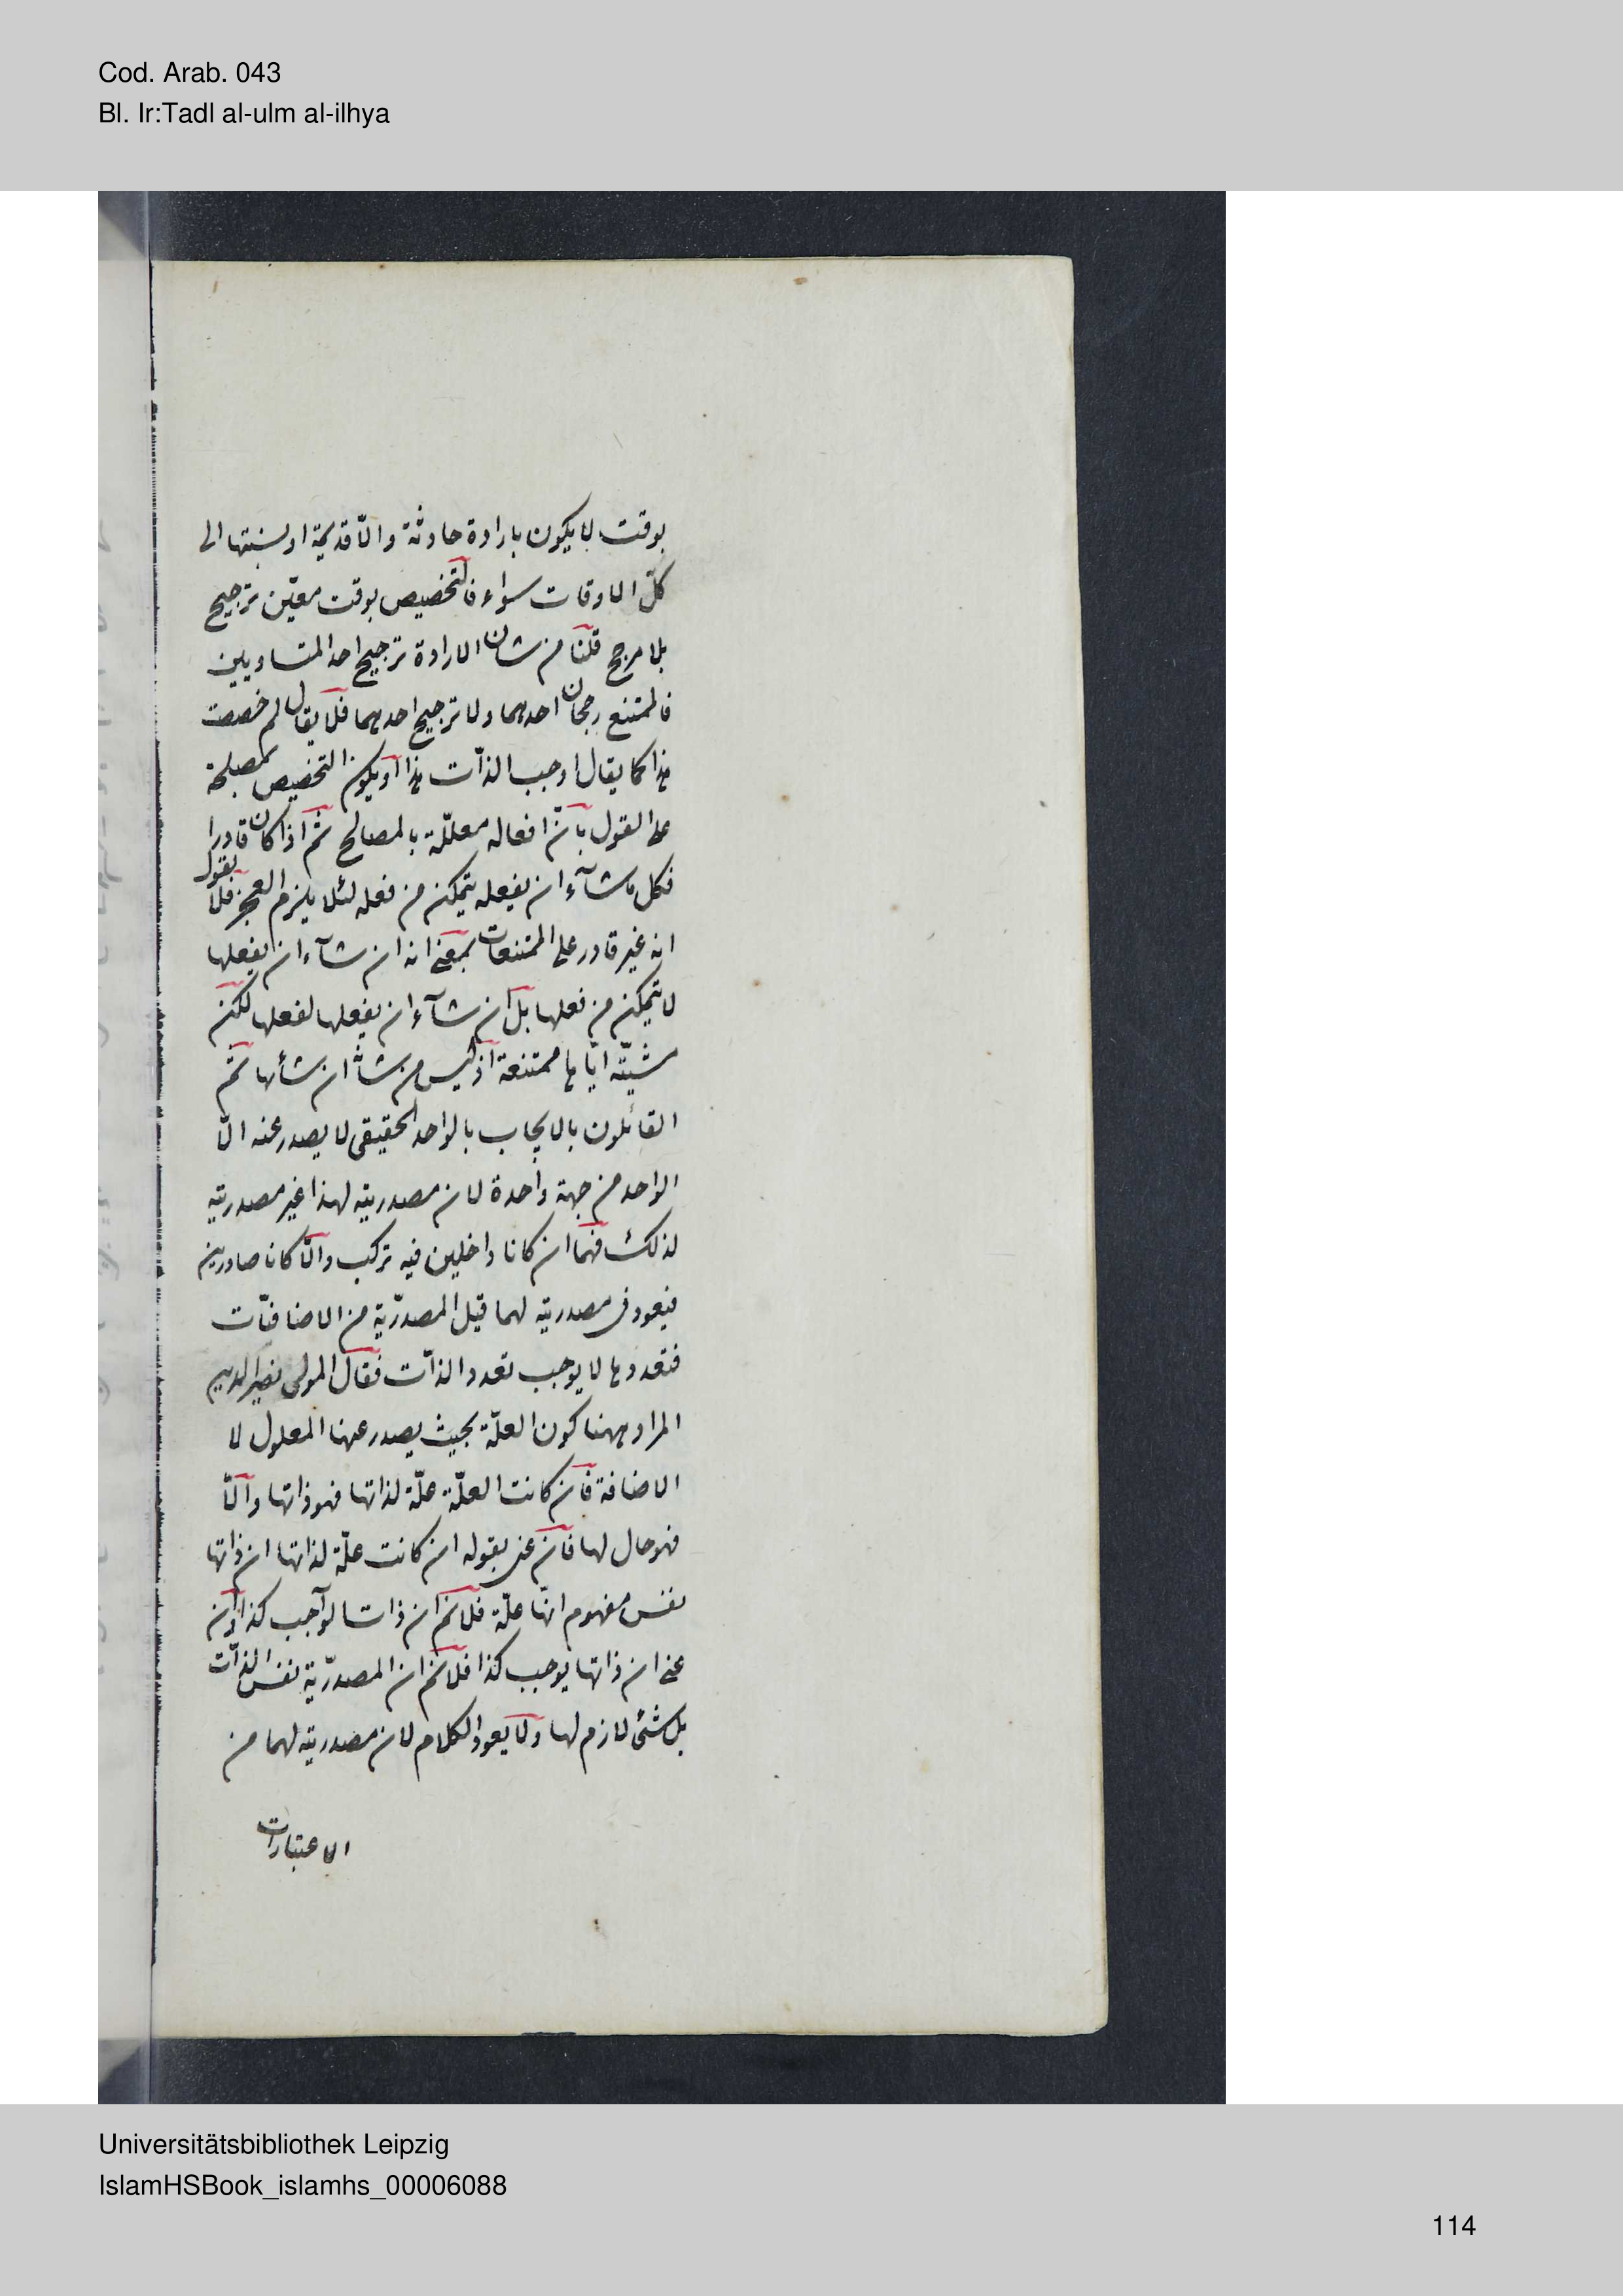 Cod. Arab. 043
Bl. Ir:Tadl al-ulm al-ilhya
بوقت لا يكون بارادة حادثة والّا قديمة او نسبتها الى
كلّ الاوقات سواء فالتخصيص بوقت معيّن ترجيح
بلا مرجح قلنا من شان الارادة ترجيح احد المتساويين
فالممتنع رجحان احدهما ولا ترجيح احدهما فلا يقال لم خصصت
هذا كما يقال اوجب الذات هذا او يكون التخصيص لمصلحة
على القول بانّ افعاله معلّلة بالمصالح ثم اذا كان قادرا
فكل ما شآء ان يفعله يتمكن من فعله لئلا يلزم العجز فلا يقول
انه غير قادر على الممتنعات بمعنى انه ان شآء ان يفعلها
لا يتمكن من فعلها بل ان شآء ان يفعلها لفعلها لكن
مشيّته ايّاها ممتنعة اذ ليس من شانه ان يشأها ثم
القائلون بالايجاب بالواحد الحقيقى لا يصدر عنه الّا
الواحد من جهة واحدة لان مصدريته لهذا غير مصدريته
لذلك فهما ان كانا داخلين فيه تركب والّا كانا صادرين
فيعود فى مصدريته لهما قيل المصدريّة من الاضافيّات
فتعددها لا يوجب تعدد الذات فقال المولى نصير الدين
المراد ههنا كون العلّة بحيث يصدر عنها المعلول لا
الاضافة فان كانت العلّة علّة لذاتها فهو ذاتها والّا
فهو حال لها فان عنى بقوله ان كانت علّة لذاتها ان ذاتها
نفس مفهوم انها علّة فلانم ان ذات الواجب كذا وان
عنى ان ذاتها يوجب كذا فلانم ان المصدريّة نفس الذات
بل شئ لازم لها ولا يعود الكلام لان مصدريته لهما من
الاعتبارات
Universitätsbibliothek Leipzig
IslamHSBook_islamhs_00006088
114